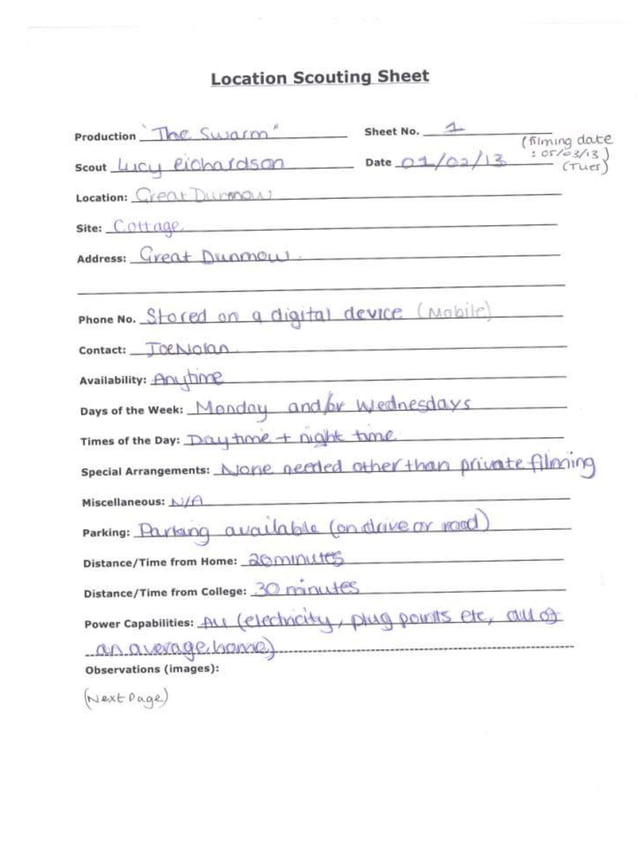 Location Scouting Sheet
Production "The Swarm" Sheet No. 1
(filming date
: 05/03/13)
(Tues)
Scout Lucy Richardson Date 01/02/13
Location: Great Dunmow
Site: Cottage
Address: Great Dunmow.
Phone No. Stored on a digital device (Mobile)
Contact: Joe Nolan
Availability: Anytime
Days of the Week: Monday and/or Wednesdays
Times of the Day: Daytime + night time
Special Arrangements: None needed other than private filming
Miscellaneous: N/A
Parking: Parking available (on drive or road)
Distance/Time from Home: 20 minutes
Distance/Time from College: 30 minutes
Power Capabilities: All (electricity, plug points etc, all of
an average home)
Observations (images):
(Next Page)